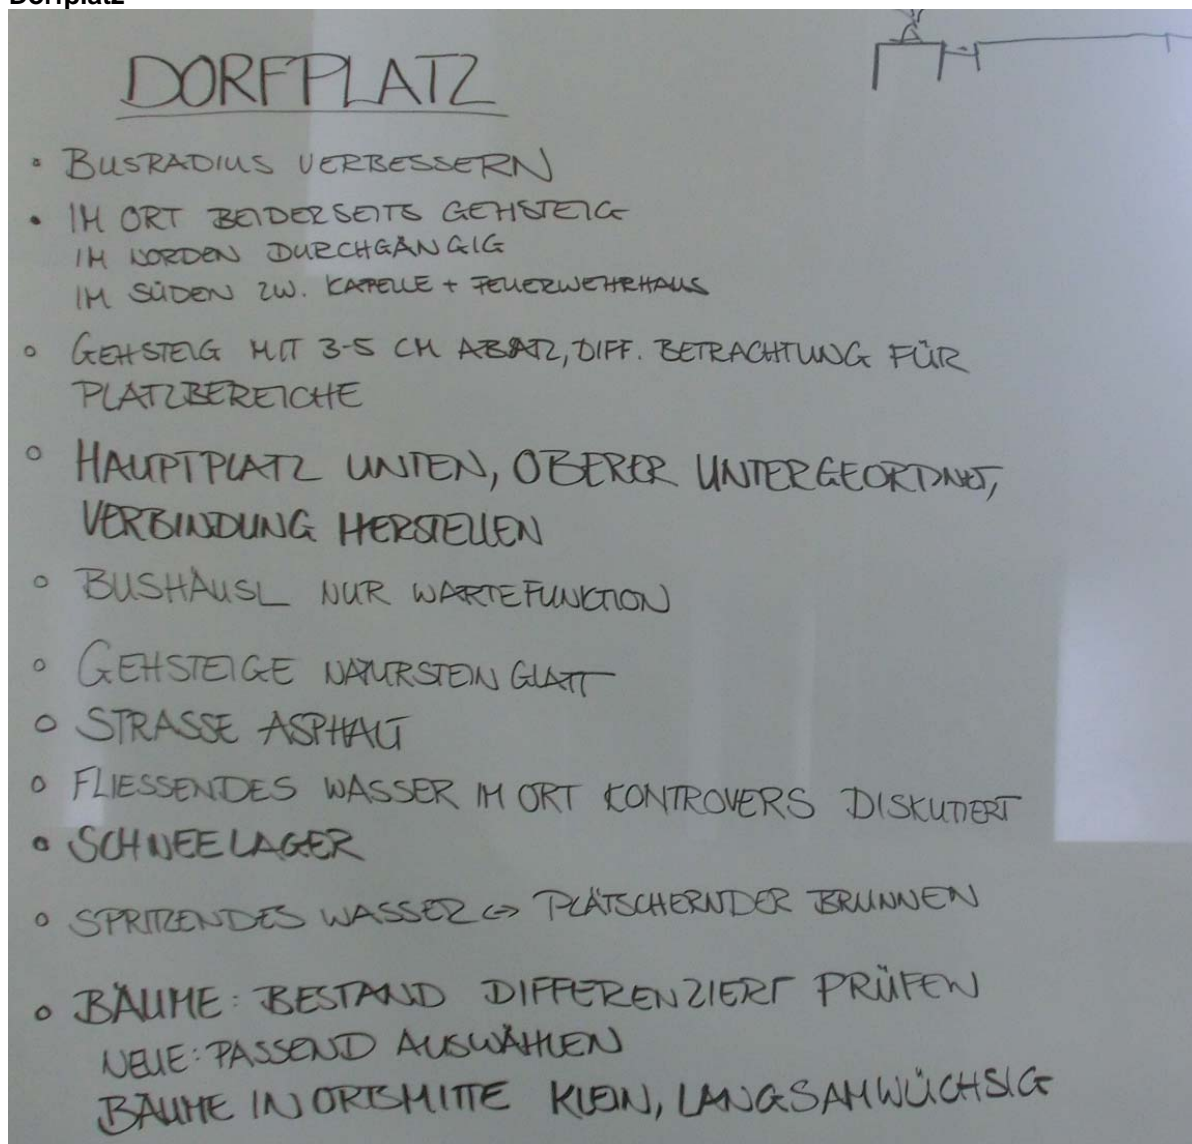 Dorfplatz
DORFPLATZ
• BUSRADIUS VERBESSERN
• IM ORT BEIDERSEITS GEHSTEIG
IM NORDEN DURCHGÄNGIG
IM SÜDEN ZW. KAPELLE + FEUERWEHRHAUS
• GEHSTEIG MIT 3-5 CM ABSATZ, DIFF. BETRACHTUNG FÜR
PLATZBEREICHE
• HAUPTPLATZ UNTEN, OBERER UNTERGEORDNET,
VERBINDUNG HERSTELLEN
• BUSHÄUSL NUR WARTEFUNKTION
• GEHSTEIGE NATURSTEIN GLATT
• STRASSE ASPHALT
• FLIESSENDES WASSER IM ORT KONTROVERS DISKUTIERT
• SCHNEELAGER
• SPRITZENDES WASSER ↔ PLÄTSCHERNDER BRUNNEN
• BÄUME: BESTAND DIFFERENZIERT PRÜFEN
NEUE: PASSEND AUSWÄHLEN
BÄUME IN ORTSMITTE KLEIN, LANGSAMWÜCHSIG